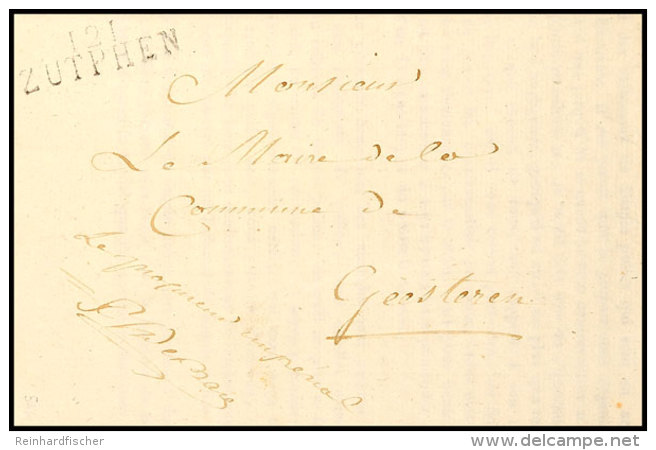 121
ZUTPHEN
Monsieur
Le Maire de la
Commune de
Geesteren
Le procureur impérial
Reinhardfischer
© www.delcampe.net